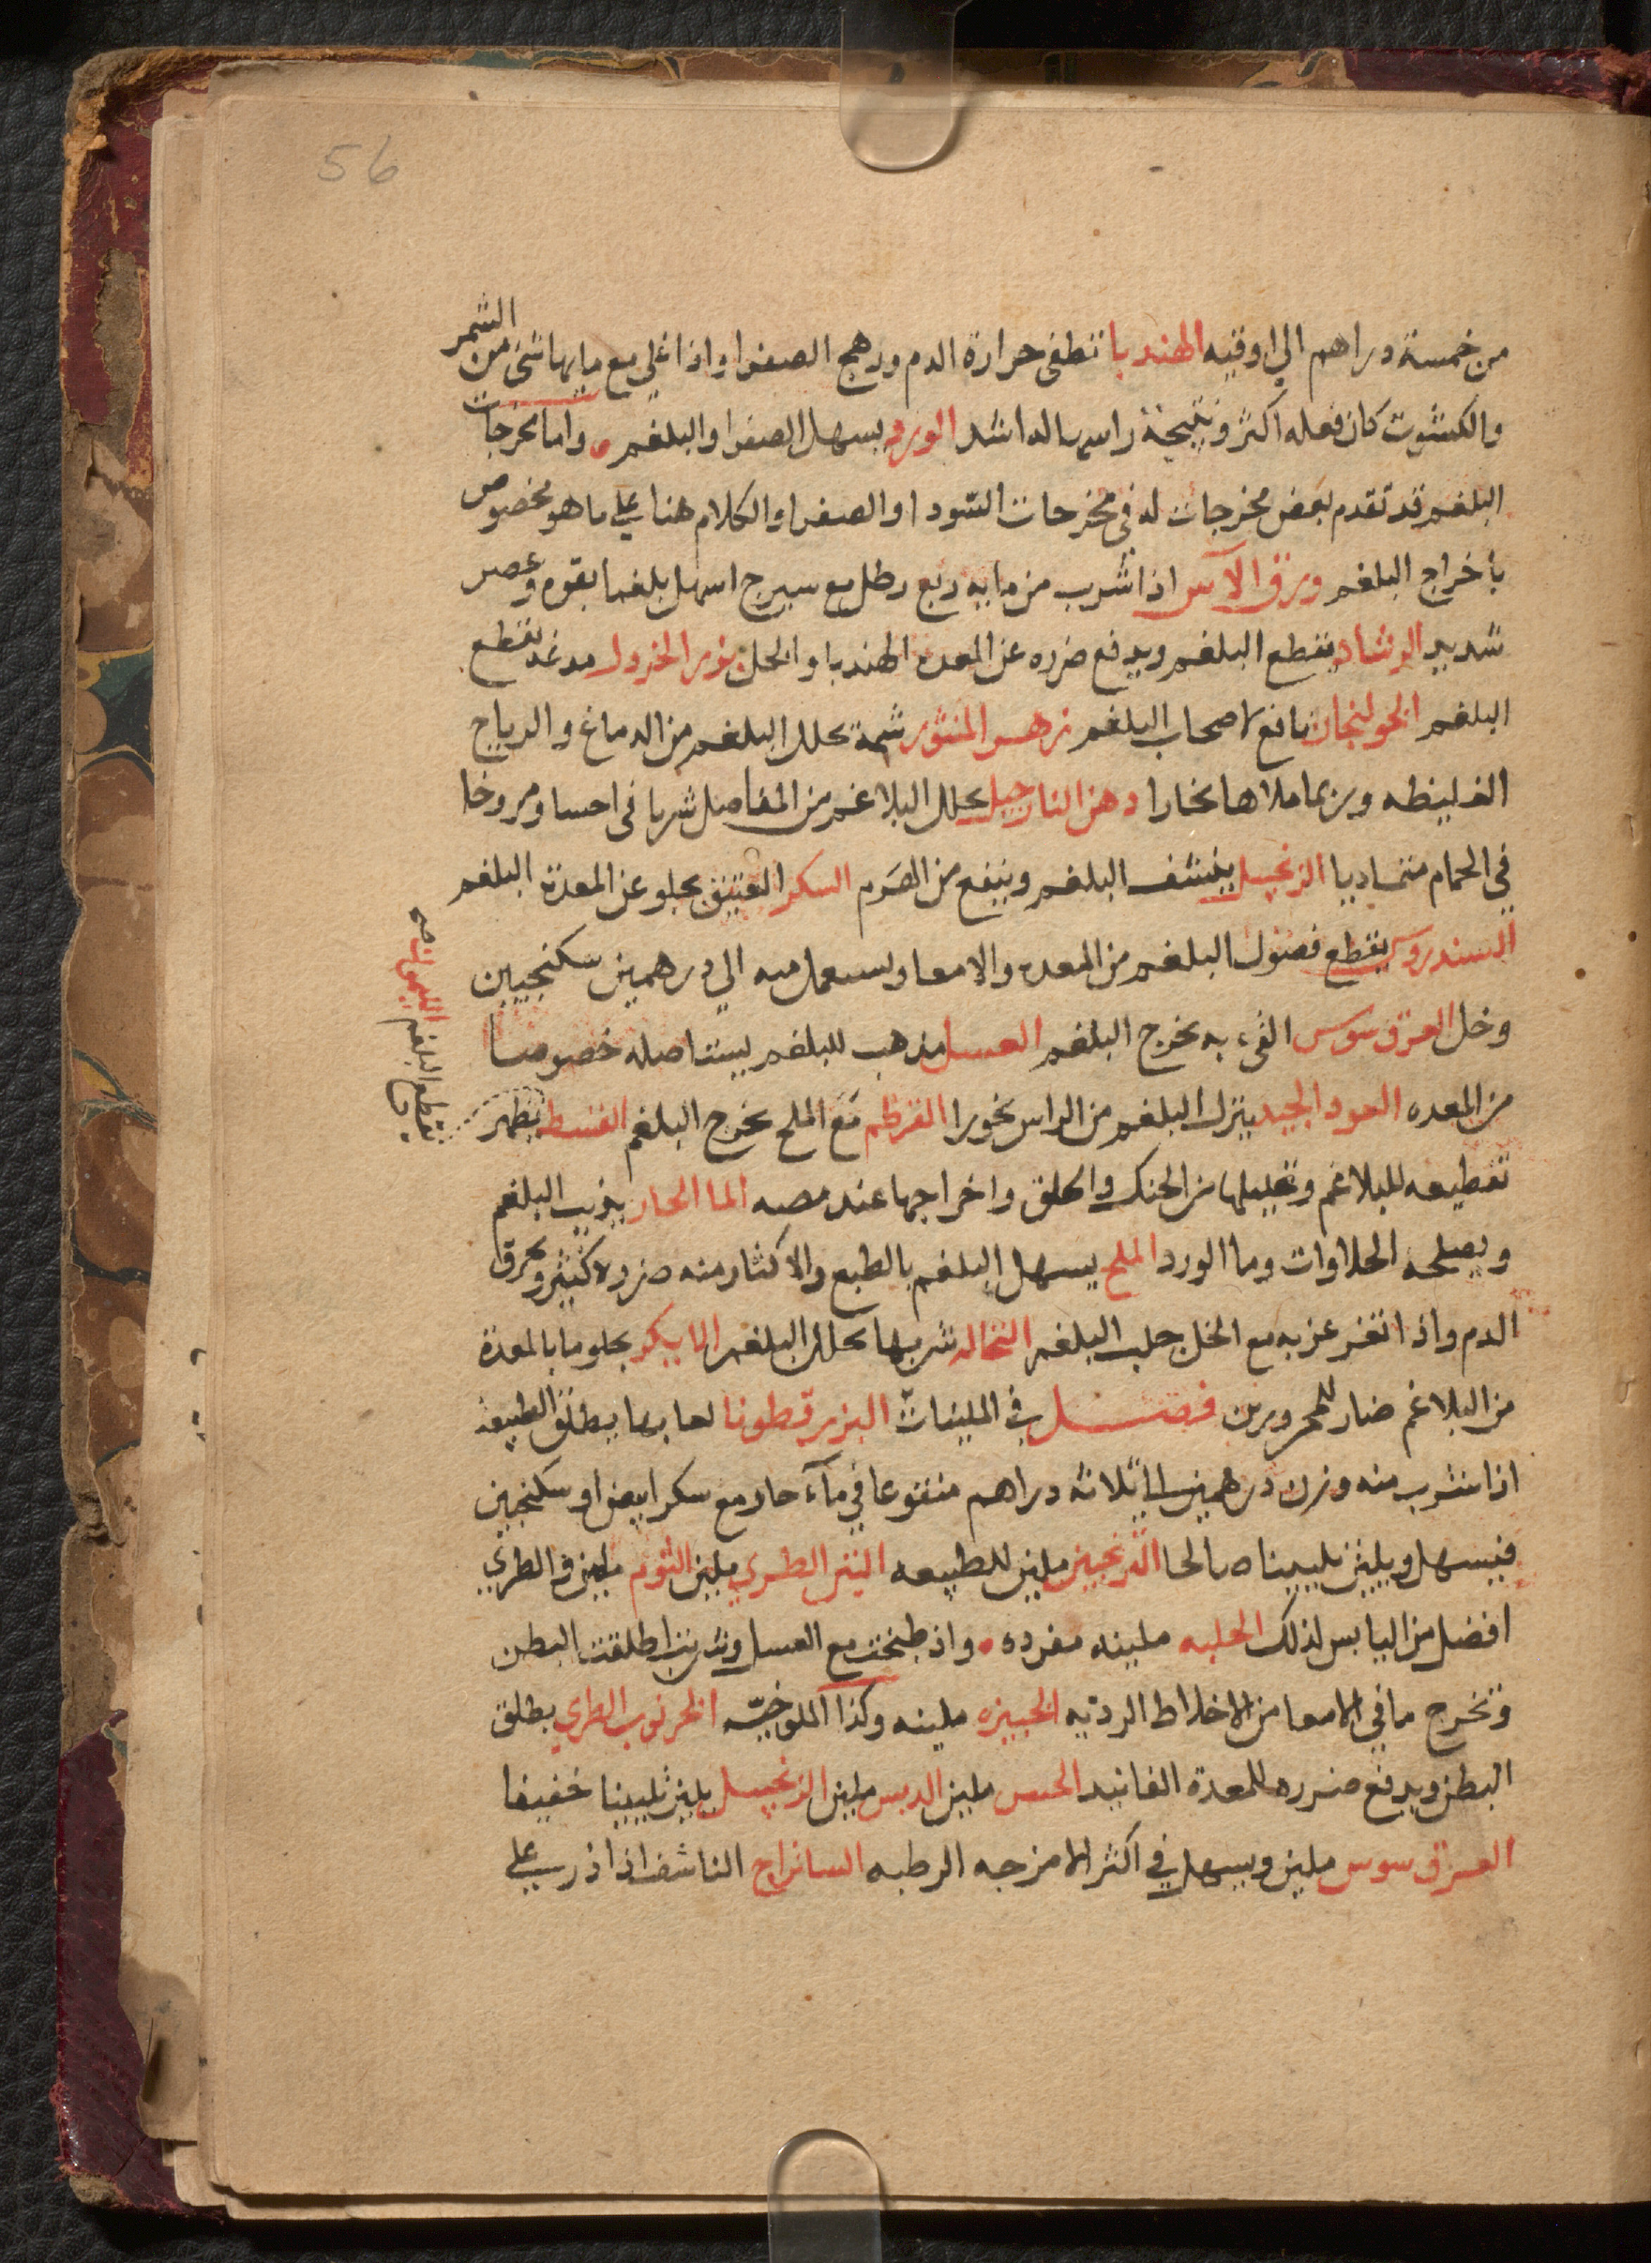 56
من خمسة دراهم الي اوقيه الهندبا تطفى حرارة الدم ورهج الصفرا واذا غلي مع مايها شى من الشمر
والكشوت كان فعله اكثر ونتيجة راسماله اشد الورد يسهل الصفرا والبلغم واما مخرجات
البلغم قد تقدم بعض مخرجات له في مخرجات السودا والصفرا والكلام هنا علي ما هو مخصوص
بأخراج البلغم ورق الآس اذا شرب من مايه ربع رطل مع سيرج اسهل بلغما بقوه وعصر
شديد الرشاد يقطع البلغم ويدفع ضرره عن المعده الهندبا والخل بزر الخردل يقطع
البلغم الخولنجان نافع لاصحاب البلغم زهر المنثور شمه يحلل البلغم من الدماغ والرياح
الغليظه وربما ملاها بخارا دهن النارجيل يحلل البلاغم من المفاصل شربا في احسا ومروخا
في الحمام متماديا الزنجبيل ينشف البلغم وينفع من الصرم السكر العتيق يجلو عن المعدة البلغم
السندروس يقطع فضول البلغم من المعده والامعا ويستعمل منه الي درهمين سكنجبين
وخل العرق سوس القىء به يخرج البلغم العسل مذهب للبلغم يستاصله خصوصا
من المعده العود الجيد ينزل البلغم من الراس بخورا القرطم مع الملح يخرج البلغم القسط يظهر
تقطيعه للبلاغم وتحليلها من الحنك والحلق واخراجها عند مصه الما الحار يذيب البلغم
ويصلحه الحلاوات وما الورد الملح يسهل البلغم بالطبع والاكثار منه ضرره كثير ويحرق
الدم واذا تغرغر به مع الخل جلب البلغم النخاله شربها يحلل البلغم المابيكر يجلو ما بالمعدة
من البلاغم ضار للمحرورين فصل في الملينات البزر قطونا لعابها يطلق الطبيعه
اذا شرب منه وزن درهمين الي ثلاثه دراهم منقوعا في مآء حار مع سكر ابيض او سكنجبين
فيسهل ويلين تليينا صالحا الترنجبين ملين للطبيعه التين الطري ملين الثوم ملين والطري
افضل من اليابس لذلك الحلبه ملينه مفرده واذ طبخت مع العسل وشربت اطلقت البطن
وتخرج ما في الامعا من الاخلاط الرديه الخبيزه ملينه وكذا الملوخيه الخرنوب الطري يطلق
البطن ويدفع ضرره للمعدة الفانيد الخس ملين الدبس ملين الزنجبيل يلين تليينا خفيفا
العرق سوس ملين ويسهل في اكثر الامزجه الرطبه السانراج الناشف اذا ذر يسير علي
الليمون
يقطع البلغم